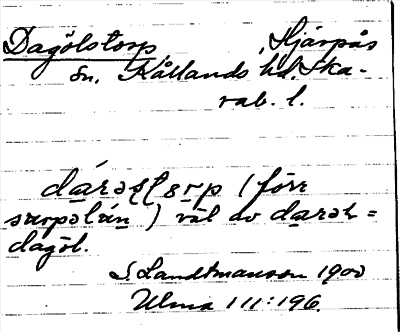 Dagölstorp , Hjärpås
sn. Kållands hd. Ska-
rab. l.
daraʃtorp (förr
) väl av
dagöl.
S. Landtmanson 1900
Ulma 111:196.